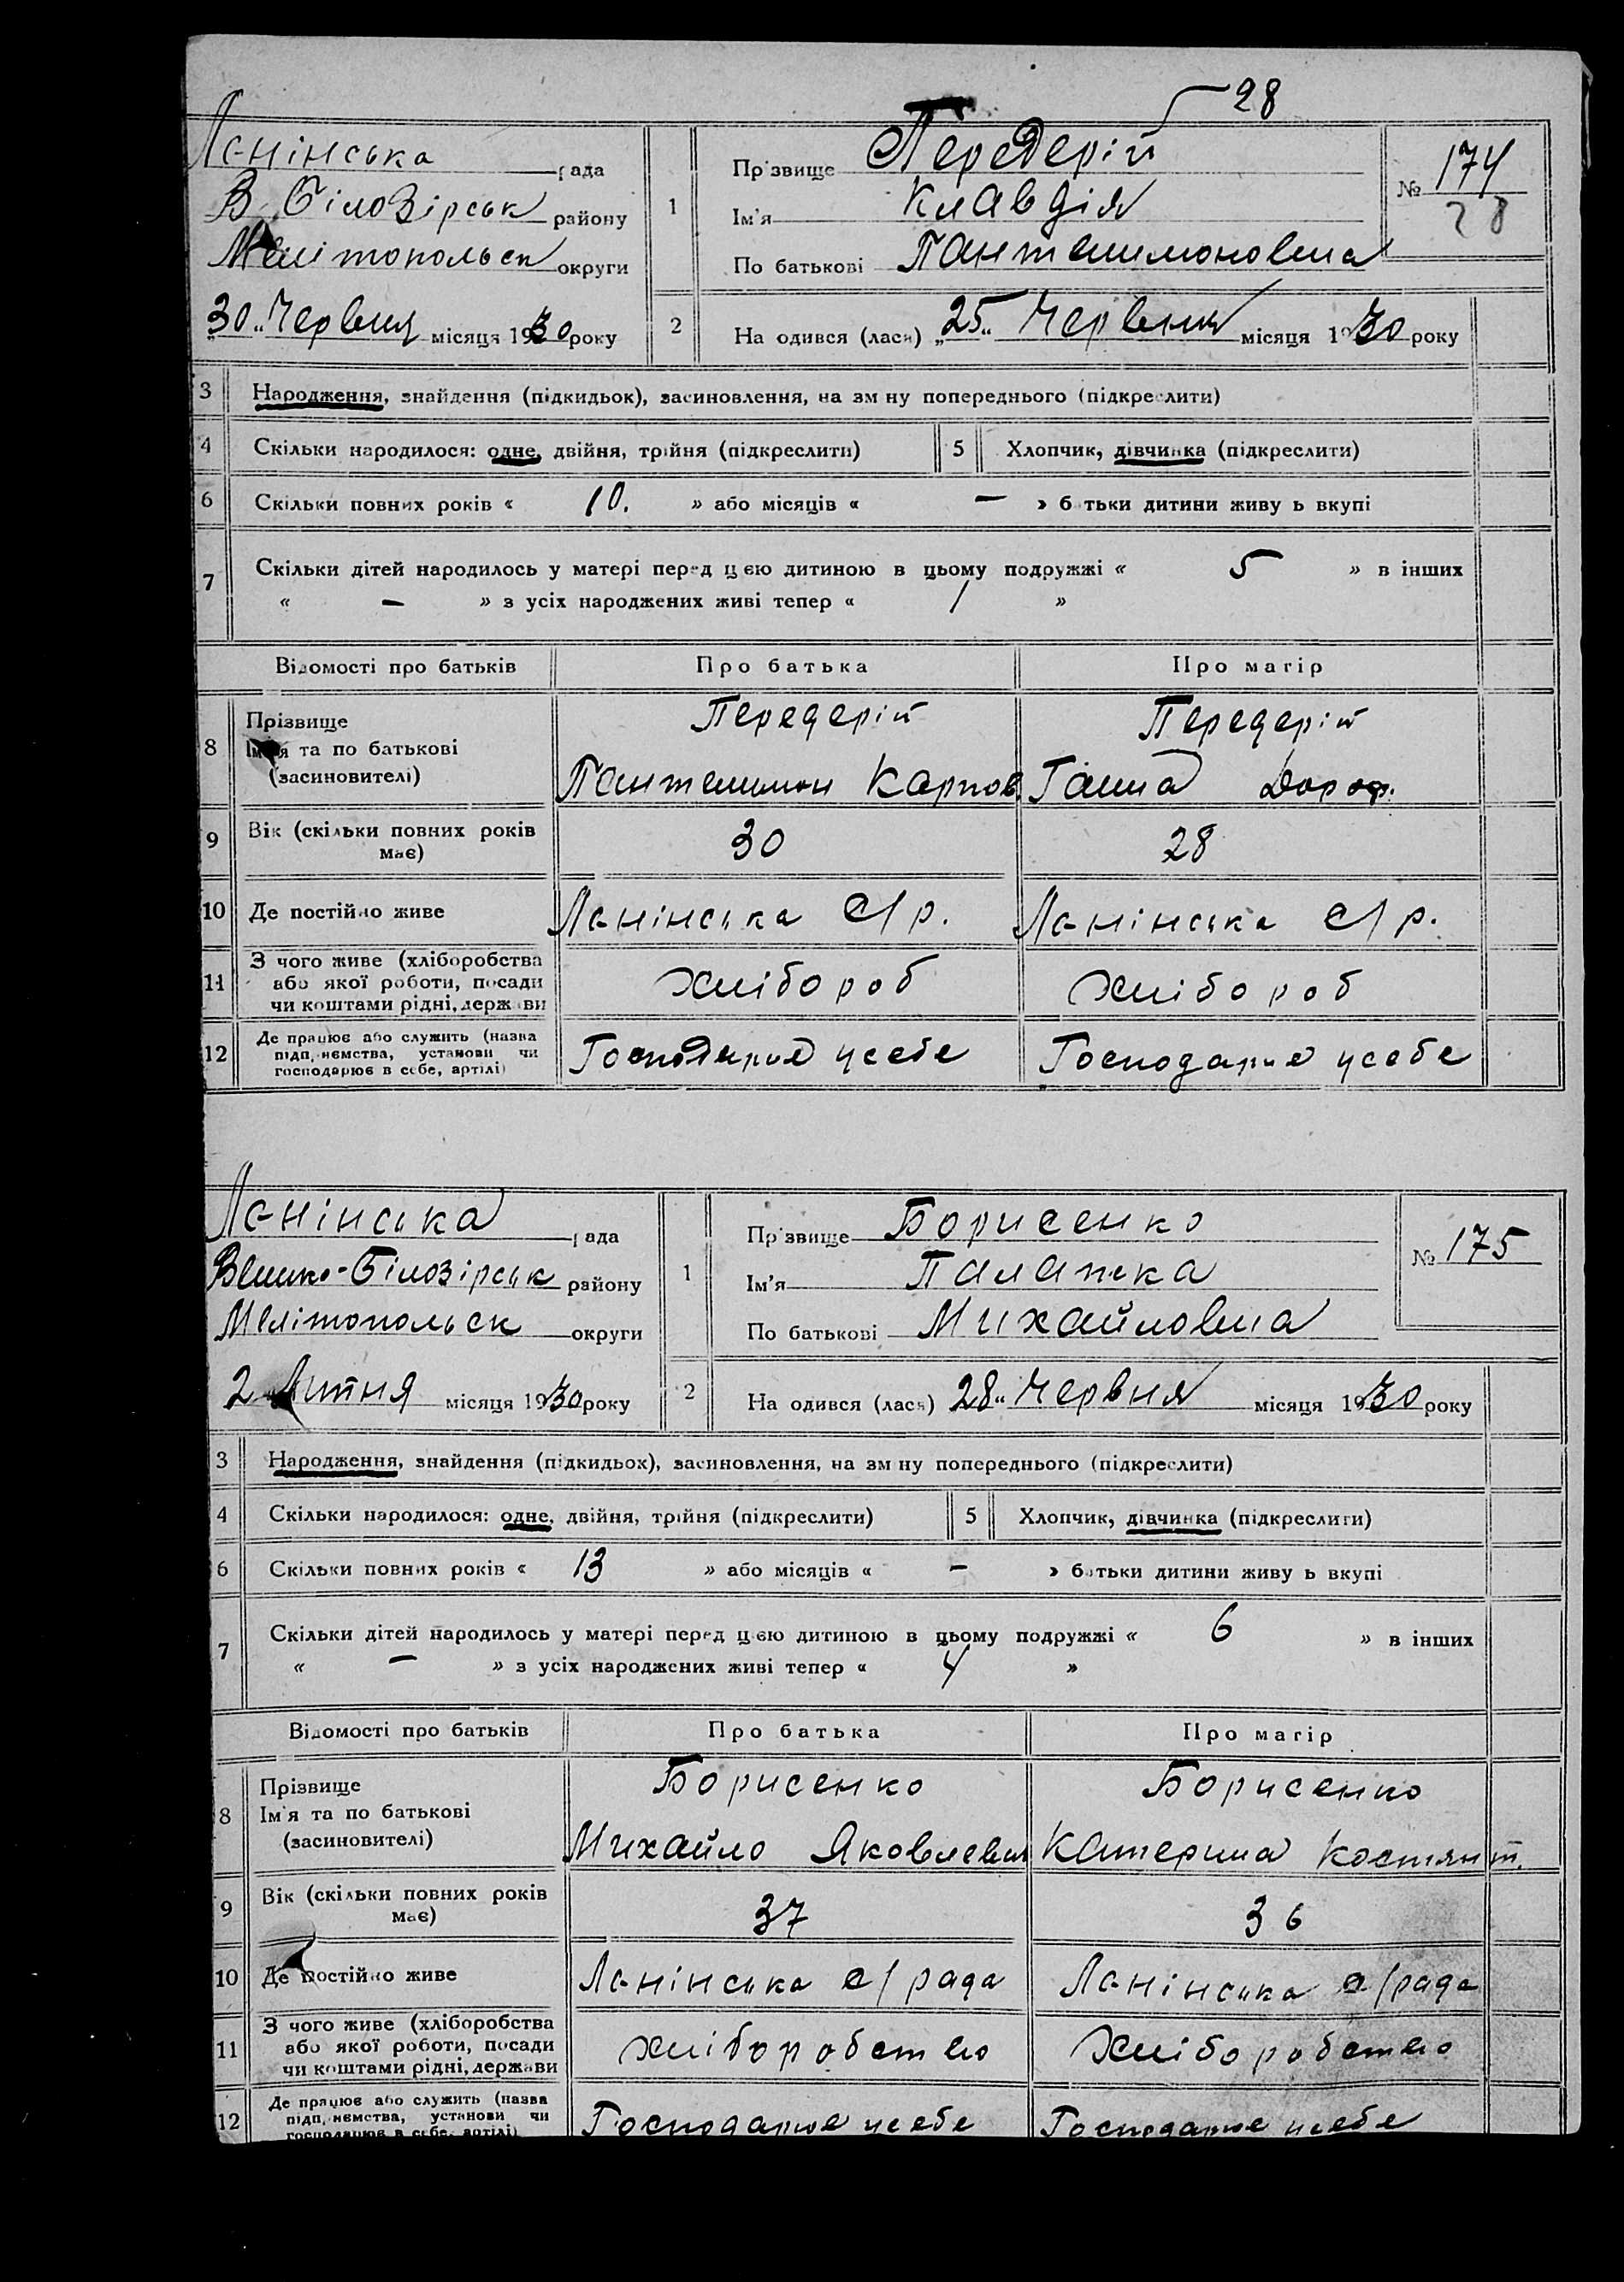 28
Ленінська рада
В. Білозірськ району
Мелітопольск округи
30 Червня місяця 1930 року
1
Прізвище Передерій
Ім'я Клавдія
По батькові Пантелимоновна
№ 174
28
2
На одився (лася) „25" Червня місяця 1930 року
3 Народження, знайдення (підкидьок), засиновлення, на зм ну попереднього (підкреслити)
4 Скільки народилося: одне, двійня, трійня (підкреслити) 5 Хлопчик, дівчинка (підкреслити)
6 Скільки повних років « 10. » або місяців « — » батьки дитини живу ь вкупі
7 Скільки дітей народилось у матері перед цією дитиною в цьому подружжі « 5 » в інших
« — » з усіх народжених живі тепер « 1 »
Відомості про батьків Про батька Про матір
8 Прізвище Ім'я та по батькові (засиновителі)
Передерій Передерій
Пантелимон Карпов. Ганна Дороф.
9 Вік (скільки повних років має) 30 28
10 Де постійно живе Ленінська с/р. Ленінська с/р.
11 З чого живе (хліборобства
або якої роботи, посади
чи коштами рідні, держави
Хлібороб Хлібороб
12 Де працює або служить (назва
підп, иємства, установи чи
господарює в себе, артілі)
Господарює усебе Господарює усебе
Ленінська рада
Велико-Білозірськ району
Мелітопольск округи
2 Липня місяця 1930 року
1
Прізвище Борисенко
Ім'я Палажка
По батькові Михайловна
№ 175
2
На одився (лася) 28" Червня місяця 1930 року
3 Народження, знайдення (підкидьох), засиновлення, на зм ну попереднього (підкреслити)
4 Скільки народилося: одне, двійня, трійня (підкреслити) 5 Хлопчик, дівчинка (підкреслити)
6 Скільки повних років « 13 » або місяців « — » батьки дитини живу ь вкупі
7 Скільки дітей народилось у матері перед цією дитиною в цьому подружжі « 6 » в інших
« — » з усіх народжених живі тепер « 4 »
Відомості про батьків Про батька Про матір
8 Прізвище
Ім'я та по батькові
(засиновителі)
Борисенко Борисенко
Михайло Яковлевич Катерина Костянт.
9 Вік (скільки повних років має) 37 36
10 Де постійно живе Ленінська с/рада Ленінська с/рада
11 З чого живе (хліборобства
або якої роботи, посади
чи коштами рідні, держави
Хліборобство Хліборобство
12 Де працює або служить (назва
підп, иємства, установи чи
господарює в себе, артілі)
Господарює усебе Господарює усебе